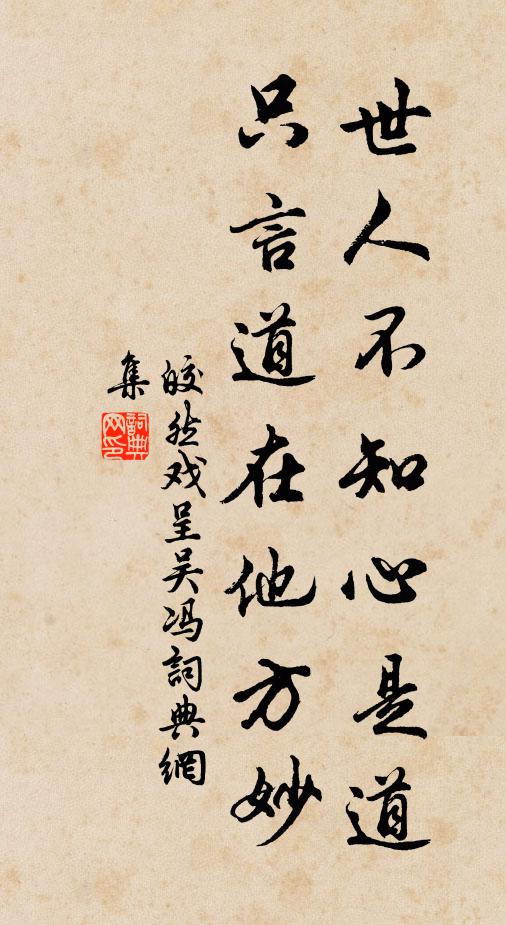 世人不知心是道
只言道在他方妙
皎然戏呈吴冯詞典網
集
詞典
网印